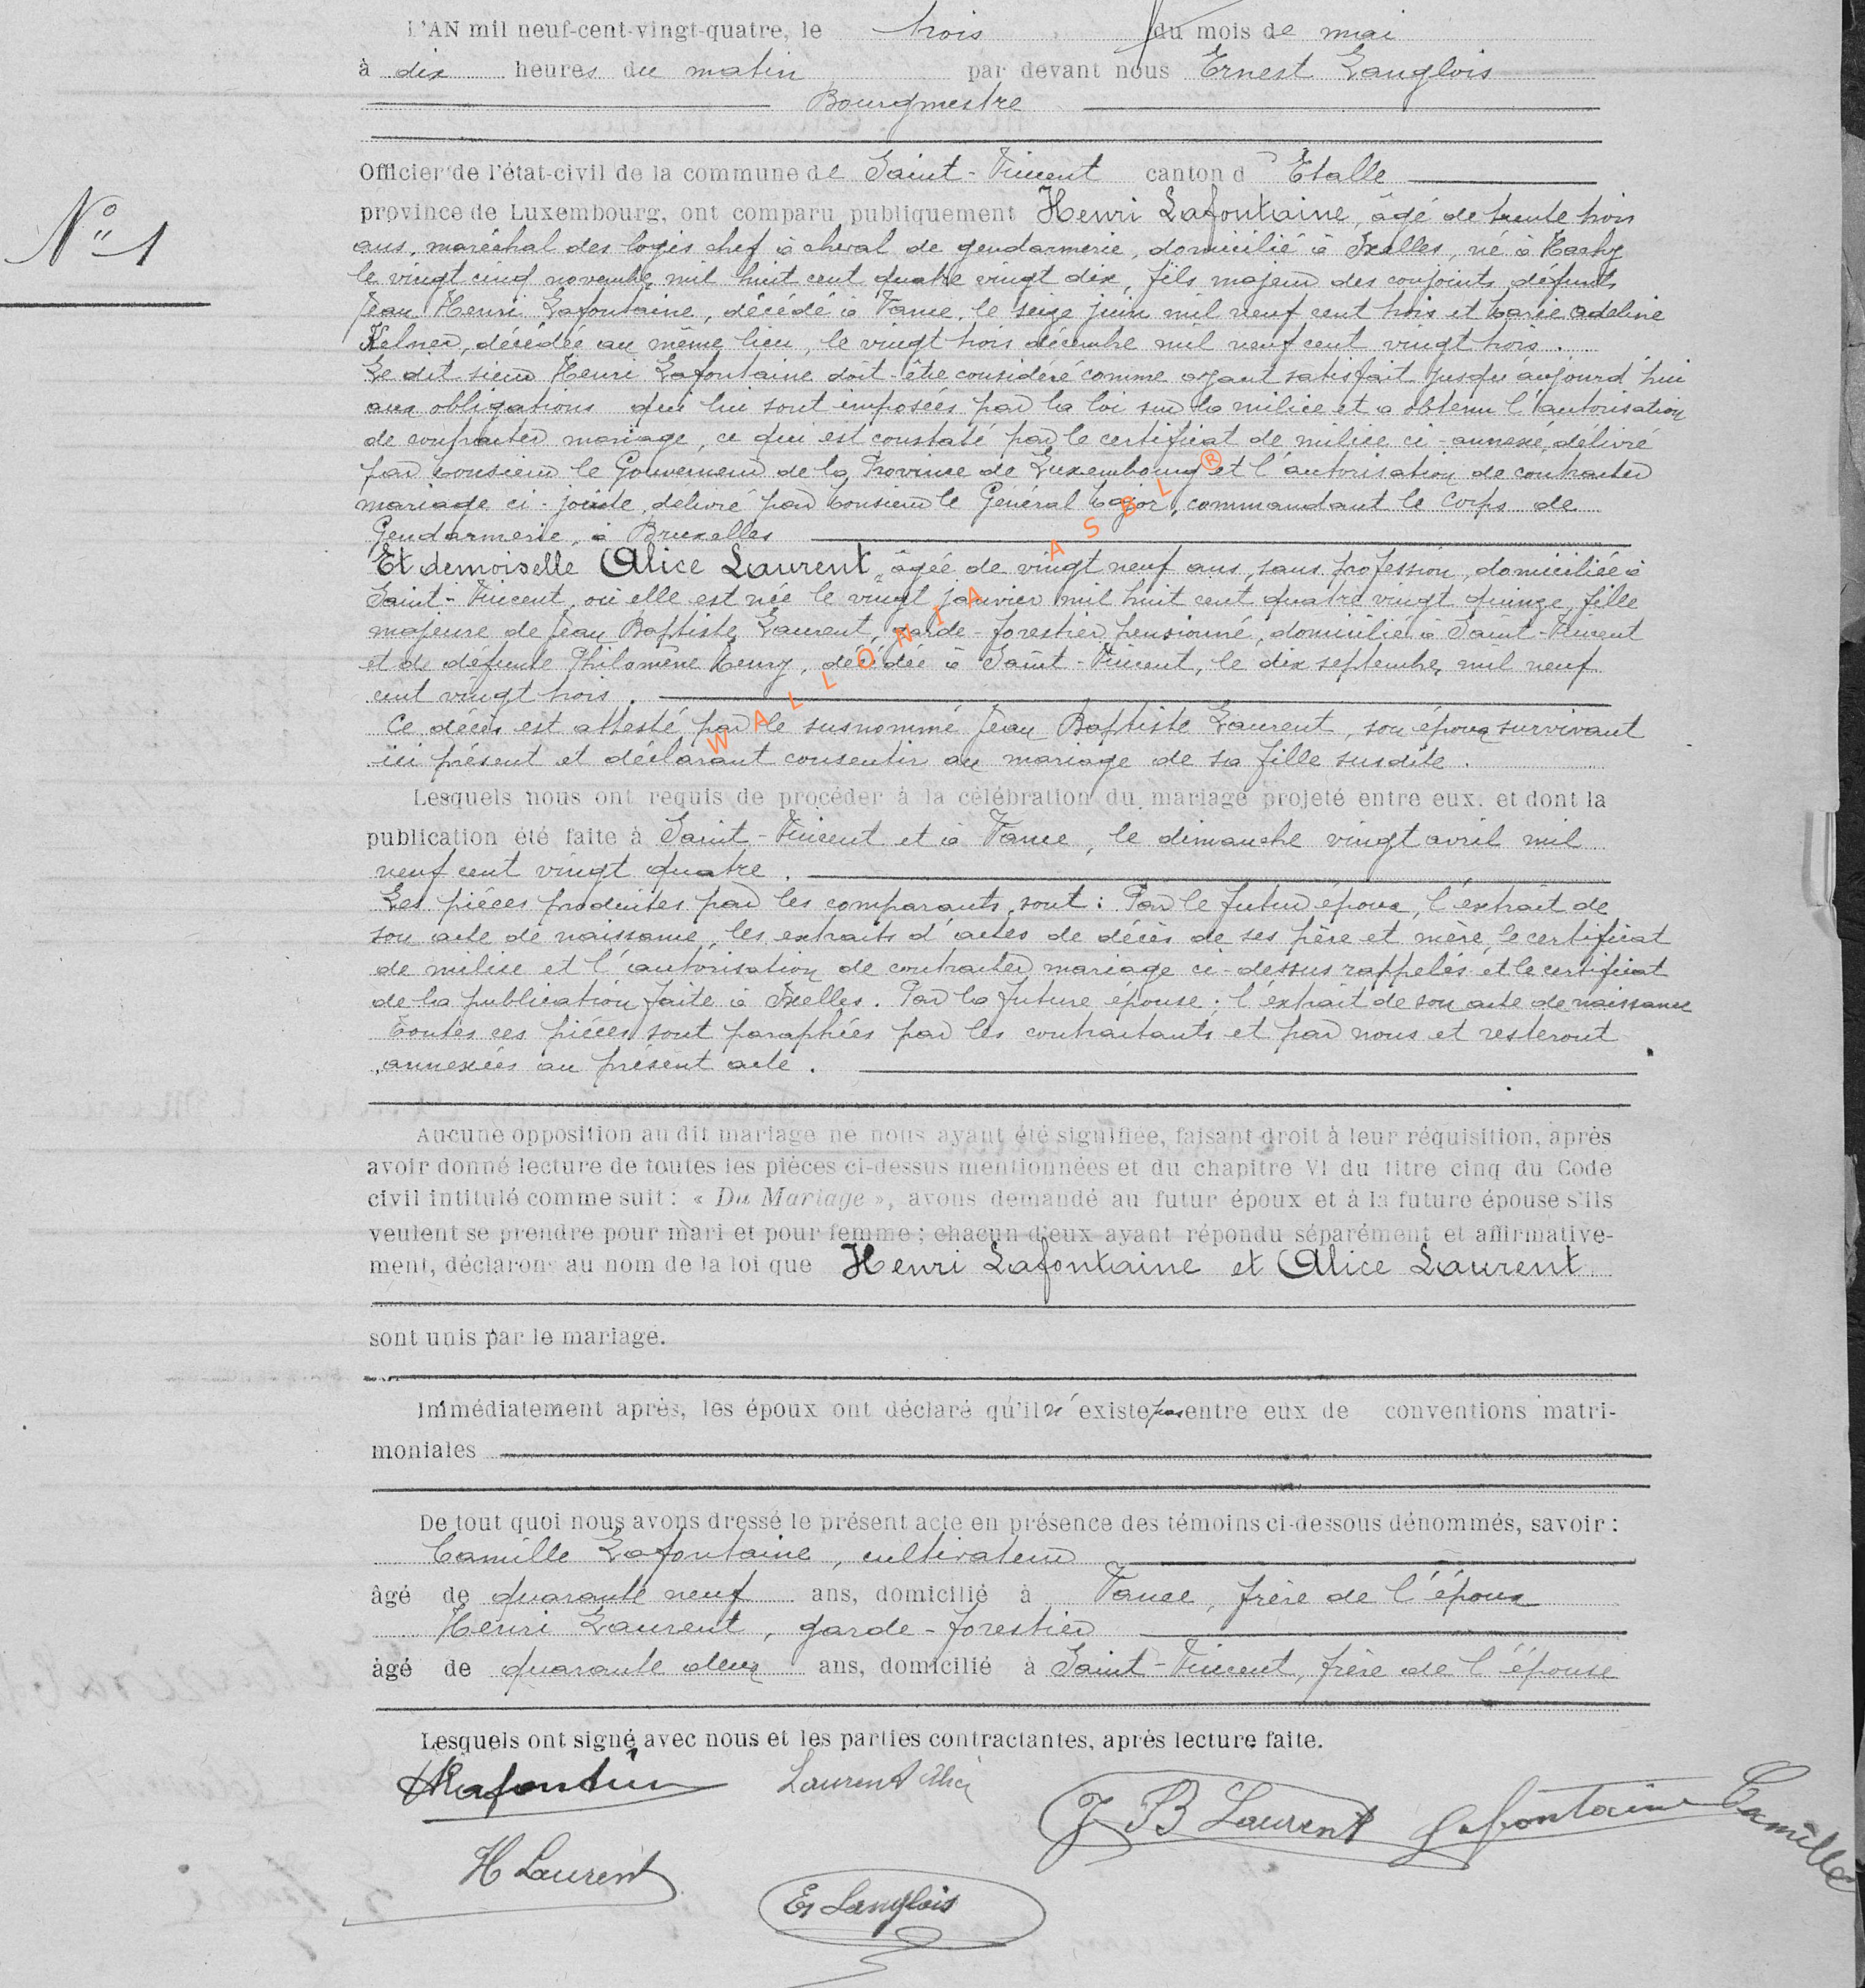 L'AN mil neuf-cent-vingt-quatre, le trois du mois de mai
à dix heures du matin par devant nous Ernest Langlois
Bourgmestre
Officier de l'état-civil de la commune de Saint-Vincent canton d'Etalle
N° 1
province de Luxembourg, ont comparu publiquement Henri Lafontaine, âgé de trente trois
ans, maréchal des logis chef à cheval de gendarmerie, domicilié à Ixelles, né à Hachy
le vingt cinq novembre mil huit cent quatre vingt dix, fils majeur des conjoints défunts
Jean Henri Lafontaine, décédé à Vance, le seize juin mil neuf cent trois et Marie Adeline
Kelner, décédée au même lieu, le vingt trois décembre mil neuf cent vingt trois.
Le dit sieur Henri Lafontaine doit-être considéré comme ayant satisfait jusqu'aujourd'hui
aux obligations qui lui sont imposées par la loi sur la milice et a obtenu l'autorisation
de contracter mariage, ce qui est constaté par le certificat de milice ci-annexé, délivré
par Monsieur le Gouverneur de la Province de Luxembourg et l'autorisation de contracter
mariage ci-jointe, délivré par Monsieur le Général Major, commandant le corps de
Gendarmerie, à Bruxelles
Et demoiselle Alice Laurent, âgée de vingt neuf ans, sans profession, domiciliée à
Saint-Vincent, où elle est née le vingt janvier mil huit cent quatre vingt quinze, fille
majeure de Jean Baptiste Laurent, garde-forestier pensionné, domicilié à Saint-Vincent
et de défunte Philomène Henry, décédée à Saint-Vincent, le dix septembre mil neuf
cent vingt trois.
Ce décès est attesté par le susnommé Jean Baptiste Laurent, son époux survivant
ici présent et déclarant consentir au mariage de sa fille susdite.
WALLONIA ASBL ®
Lesquels nous ont requis de procéder à la célébration du mariage projeté entre eux, et dont la
publication été faite à Saint-Vincent et à Vance, le dimanche vingt avril mil
neuf cent vingt quatre.
Les pièces produites par les comparants sont : Par le futur époux, l'extrait de
son acte de naissance, les extraits d'actes de décès de ses père et mère, le certificat
de milice et l'autorisation de contracter mariage ci-dessus rappelés et le certificat
de la publication faite à Ixelles. Par la future épouse : l'extrait de son acte de naissance
Toutes ces pièces sont paraphées par les contractants et par nous et resteront
annexées au présent acte.
Aucune opposition au dit mariage ne nous ayant été signifiée, faisant droit à leur réquisition, après
avoir donné lecture de toutes les pièces ci-dessus mentionnées et du chapitre VI du titre cinq du Code
civil intitulé comme suit : « Du Mariage », avons demandé au futur époux et à la future épouse s'ils
veulent se prendre pour mari et pour femme ; chacun d'eux ayant répondu séparément et affirmative-
ment, déclarons au nom de la loi que Henri Lafontaine et Alice Laurent
sont unis par le mariage.
Immédiatement après, les époux ont déclaré qu'il n'existe pas entre eux de conventions matri-
moniales
De tout quoi nous avons dressé le présent acte en présence des témoins ci-dessous dénommés, savoir :
Camille Lafontaine, cultivateur
âgé de quarante neuf ans, domicilié à Vance, frère de l'époux
Henri Laurent, garde-forestier
âgé de quarante deux ans, domicilié à Saint-Vincent, frère de l'épouse
Lesquels ont signé avec nous et les parties contractantes, après lecture faite.
HLafontaine Laurent Alice J B Laurent Lafontaine Camille
H Laurent
Er Langlois